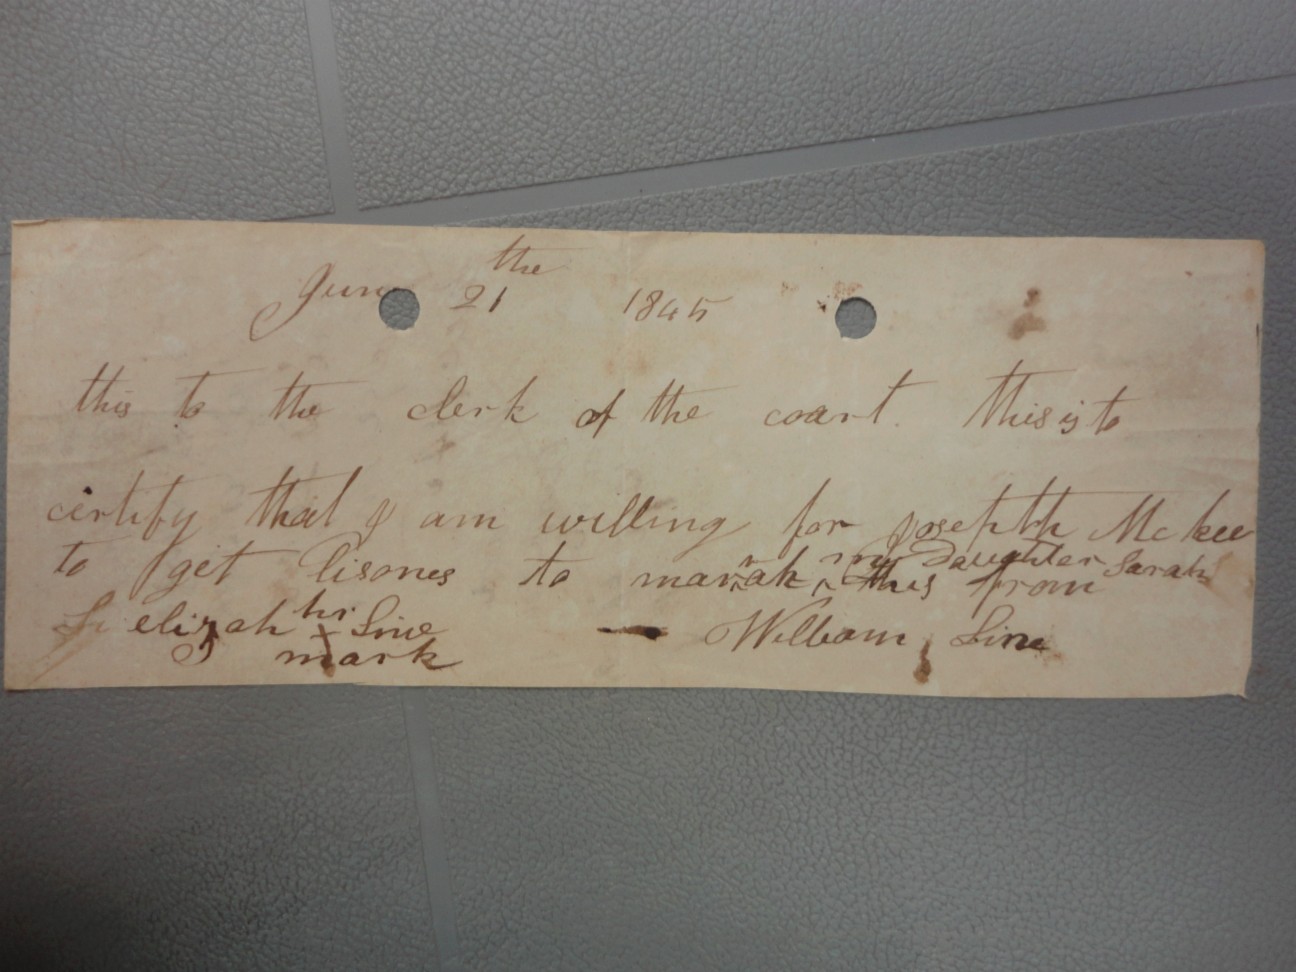 June 21 the 1845
this to the clerk of the coart. this is to
certify that I am willing for Josephth Mc kee
to get lisones to marah my Daughter Sarah this from
elizah hr x Line William Line
mark